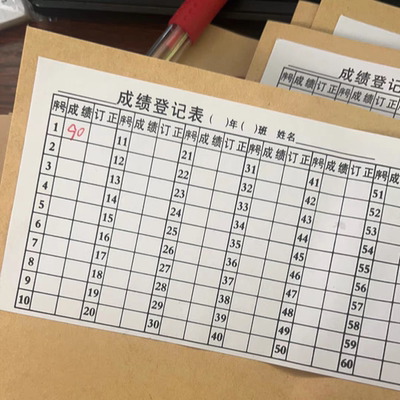 成绩登记表 ( )年( )班 姓名
序号 成绩 订正 序号 成绩 订正 序号 成绩 订正 序号 成绩 订正 序号 成绩 订正 序号 成绩 订正
1 90 11 21 31 41 51
2 12 22 32 42 52
3 13 23 33 43 53
4 14 24 34 44 54
5 15 25 35 45 55
6 16 26 36 46 56
7 17 27 37 47 57
8 18 28 38 48 58
9 19 29 39 49 59
10 20 30 40 50 60
成绩登记